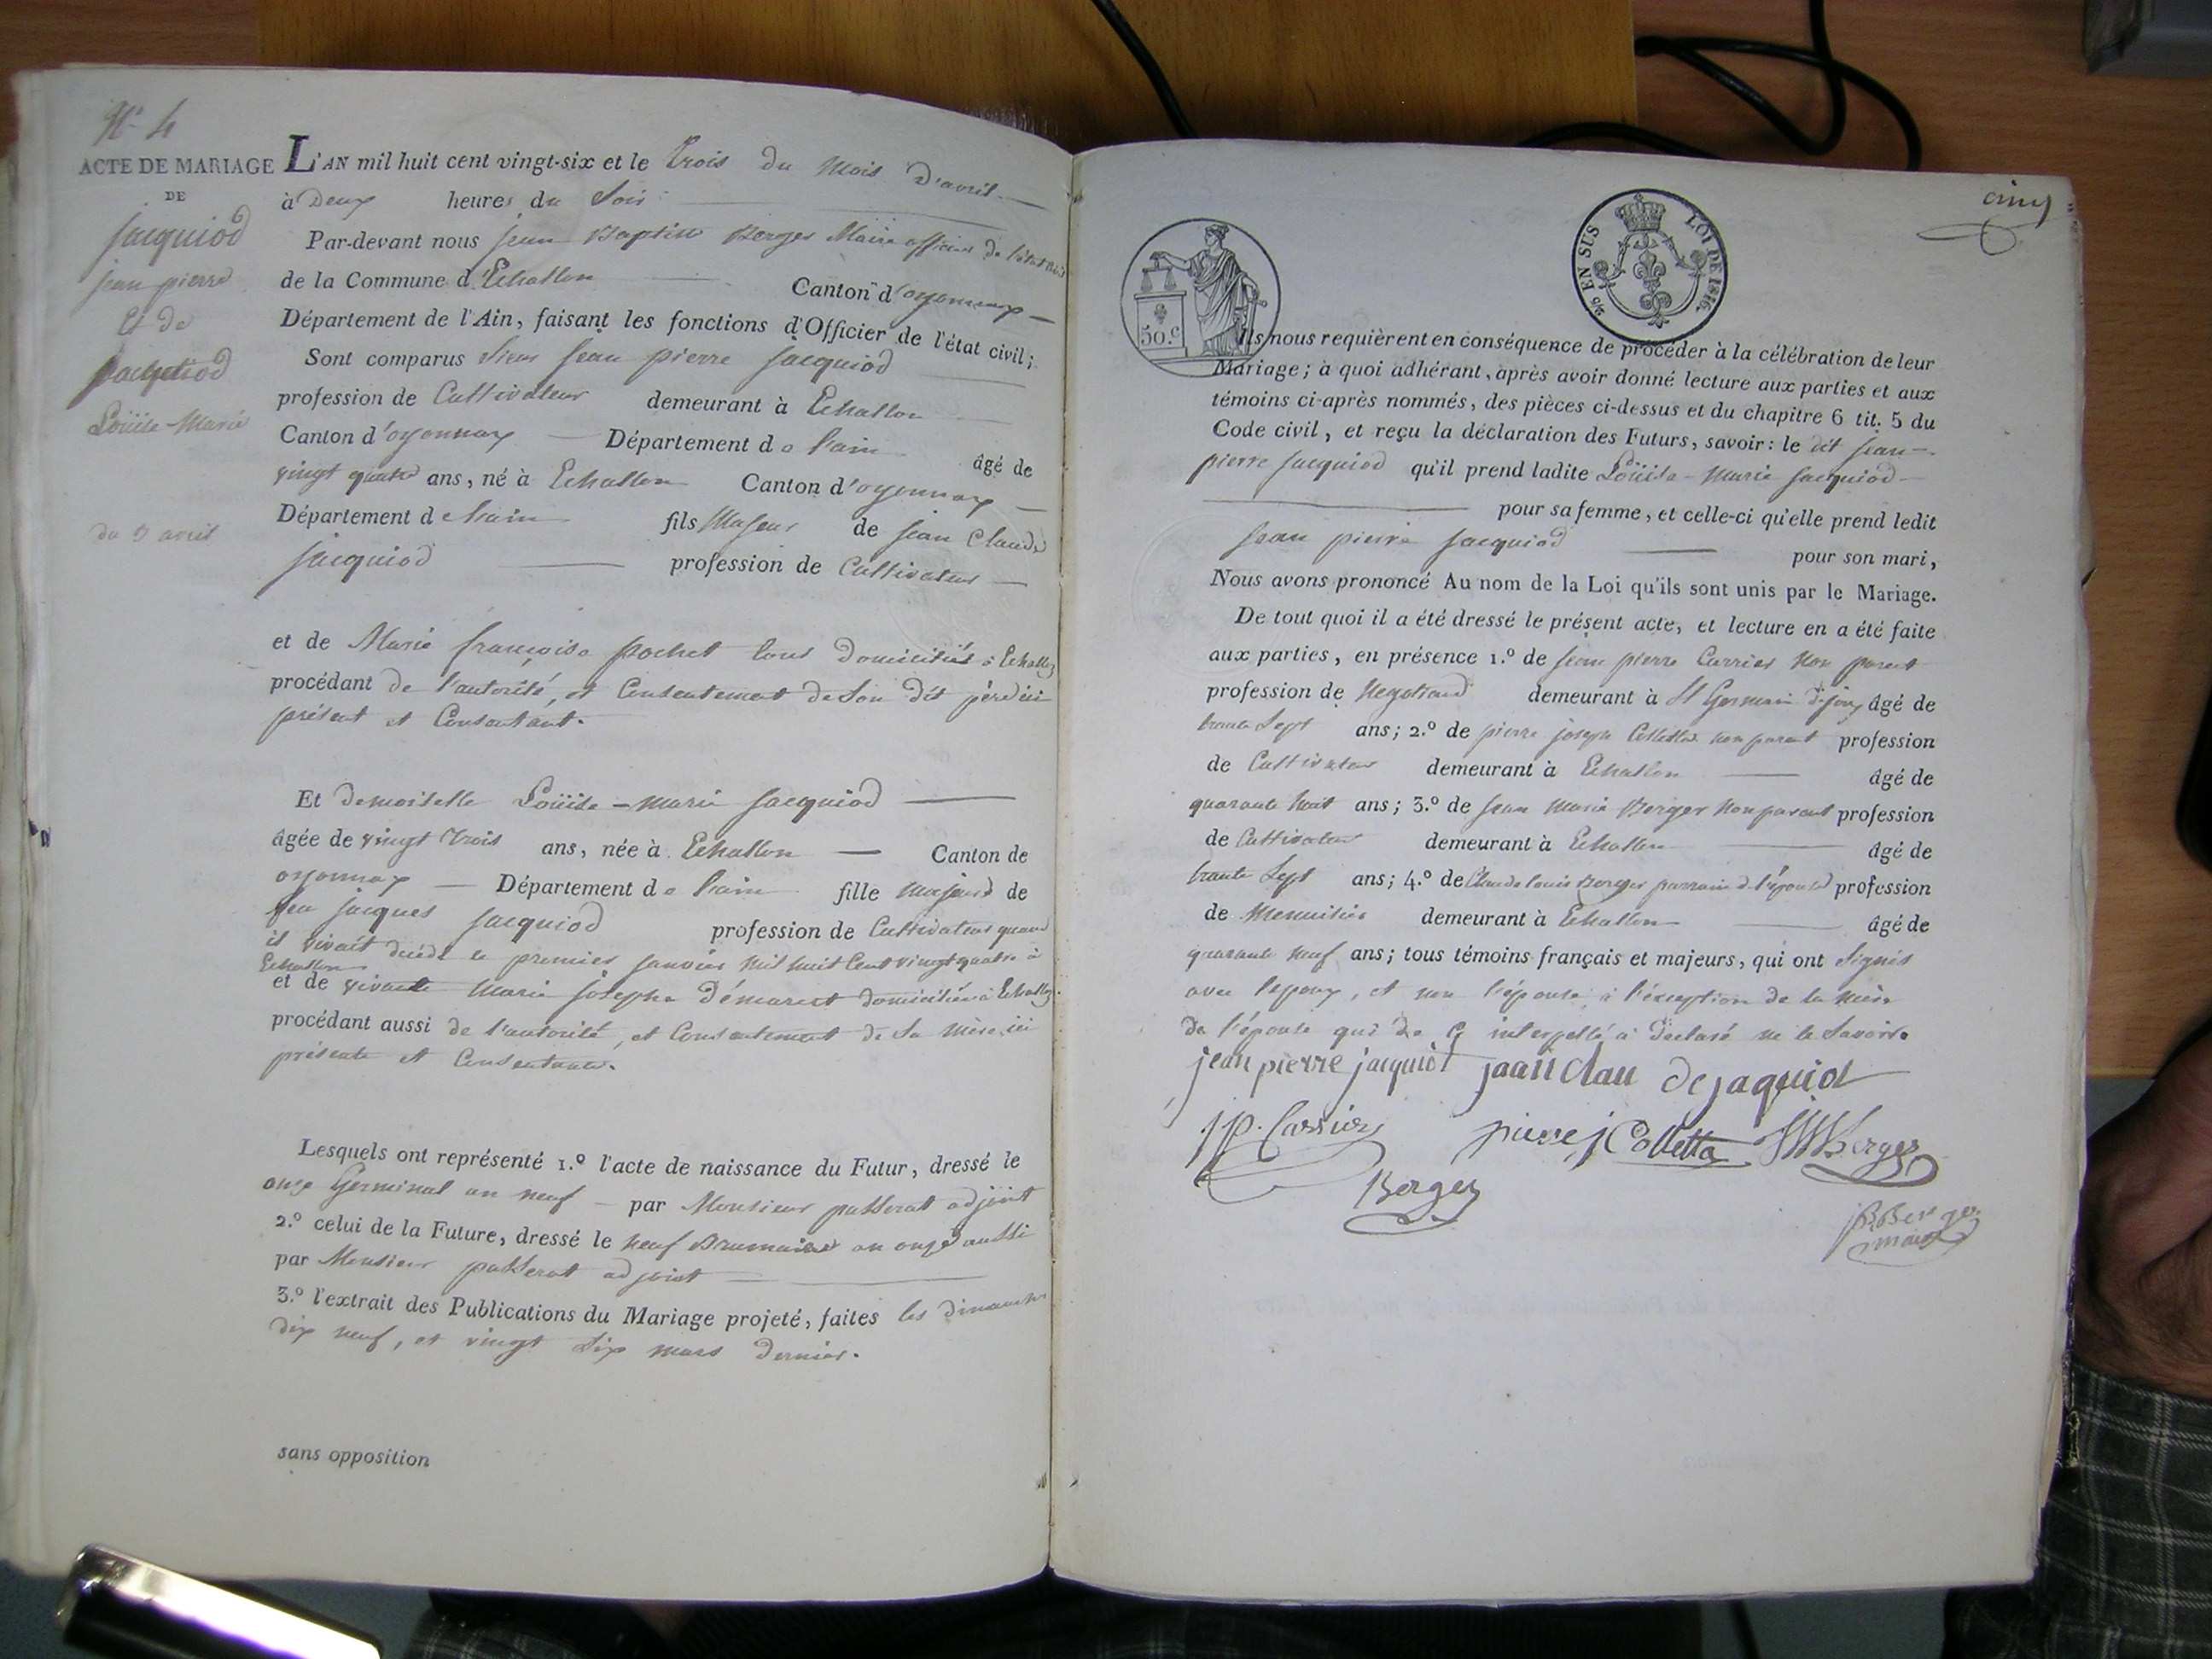 N° 4
ACTE DE MARIAGE
DE
jacquiod
jean pierre
Et de
jacquiod
Loüise-Marie
du 3 avril
L'AN mil huit cent vingt-six et le trois du mois d'avril
à Deux heures du Soir
Par-devant nous jean Baptiste Berger Maire officier de l'état civil
de la Commune d'Echallon Canton d'oyonnax
Département de l'Ain, faisant les fonctions d'Officier de l'état civil;
Sont comparus Sieur jean pierre jacquiod
profession de Cultivateur demeurant à Echallon
Canton d'oyonnax Département de l'ain âgé de
vingt quatre ans, né à Echallon Canton d'oyonnax
Département de l'ain fils Majeur de jean Claude
jacquiod profession de Cultivateur
et de Marie françoise pochet tous domiciliés à Echallon
procédant de l'autorité, et Consentement de Son dit père ici
présent et Consentant.
Et demoiselle Loüise-marie jacquiod
âgée de vingt trois ans, née à Echallon Canton de
oyonnax Département de l'ain fille majeure de
feu jacques jacquiod profession de Cultivateur quand
il vivait décédé le premier janvier mil huit Cent vingt quatre à
Echallon
et de vivante Marie josephe Démarest domiciliée à Echallon.
procédant aussi de l'autorité, et Consentement de Sa mère ici
présente et Consentante.
Lesquels ont représenté 1.° l'acte de naissance du Futur, dressé le
onze Germinal an neuf par Monsieur passerat adjoint
2.° celui de la Future, dressé le neuf Brumaire an onze aussi
par Monsieur passerat adjoint
3.° l'extrait des Publications du Mariage projeté, faites les dimanches
dix neuf, et vingt Six mars dernier.
sans opposition
cinq
50.c
2/6 EN SUS
LOI DE 1816.
Ils nous requièrent en conséquence de procéder à la célébration de leur
Mariage; à quoi adhérant, après avoir donné lecture aux parties et aux
témoins ci-après nommés, des pièces ci-dessus et du chapitre 6 tit. 5 du
Code civil, et reçu la déclaration des Futurs, savoir: le dit jean-
pierre jacquiod qu'il prend ladite Loüise-Marie jacquiod
pour sa femme, et celle-ci qu'elle prend ledit
jean pierre jacquiod pour son mari,
Nous avons prononcé Au nom de la Loi qu'ils sont unis par le Mariage.
De tout quoi il a été dressé le présent acte, et lecture en a été faite
aux parties, en présence 1.° de jean pierre Carrier non parent
profession de Negotiand demeurant à St Germain dejoux âgé de
trente Sept ans; 2.° de pierre joseph Colletta non parent profession
de Cultivateur demeurant à Echallon âgé de
quarante huit ans; 3.° de jean Marie Berger non parent profession
de Cultivateur demeurant à Echallon âgé de
trente Sept ans; 4.° de Claude louis Berger parrain de l'épouse profession
de Menuisier demeurant à Echallon âgé de
quarante neuf ans; tous témoins français et majeurs, qui ont Signés
avec l'epoux, et non l'épouse, à l'exception de la mère
de l'épouse qui de ce interpellé à Déclaré ne le Savoir.
jean pierre jacquiot jaan clau de jaquiot
jp. Carrier pierre j Colletta JM Berger
Berger
jB Berger
maire